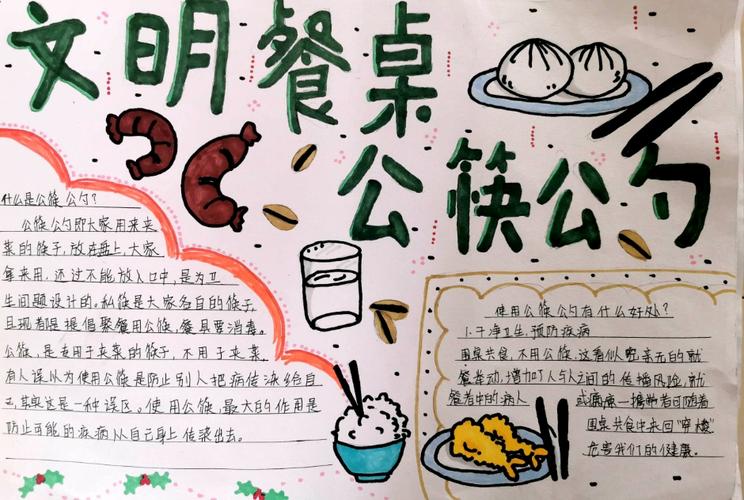 文明餐桌
公筷公勺
什么是公筷公勺？
公筷公勺即大家用来夹
菜的筷子，放在盘上，大家
拿来用，还过不能放入口中，是为卫
生问题设计的，私筷是大家各自的筷子，
且现都是提倡聚餐用公筷，餐具要消毒。
公筷，是专用于夹菜的筷子，不用于夹菜
有人误以为使用公筷是防止别人把病传染给自
己，其实这是一种误区。使用公筷，最大的作用是
防止可能的疾病从自己身上传染出去。
使用公筷公勺有什么好处？
1.干净卫生，预防疾病
围桌共食，不用公筷，这看似亲无的就
餐举动，增加了人与人之间的传播风险，就
餐者中的病人
或病菌携带者可随着
围桌共食中来回“穿梭”
危害我们的健康。